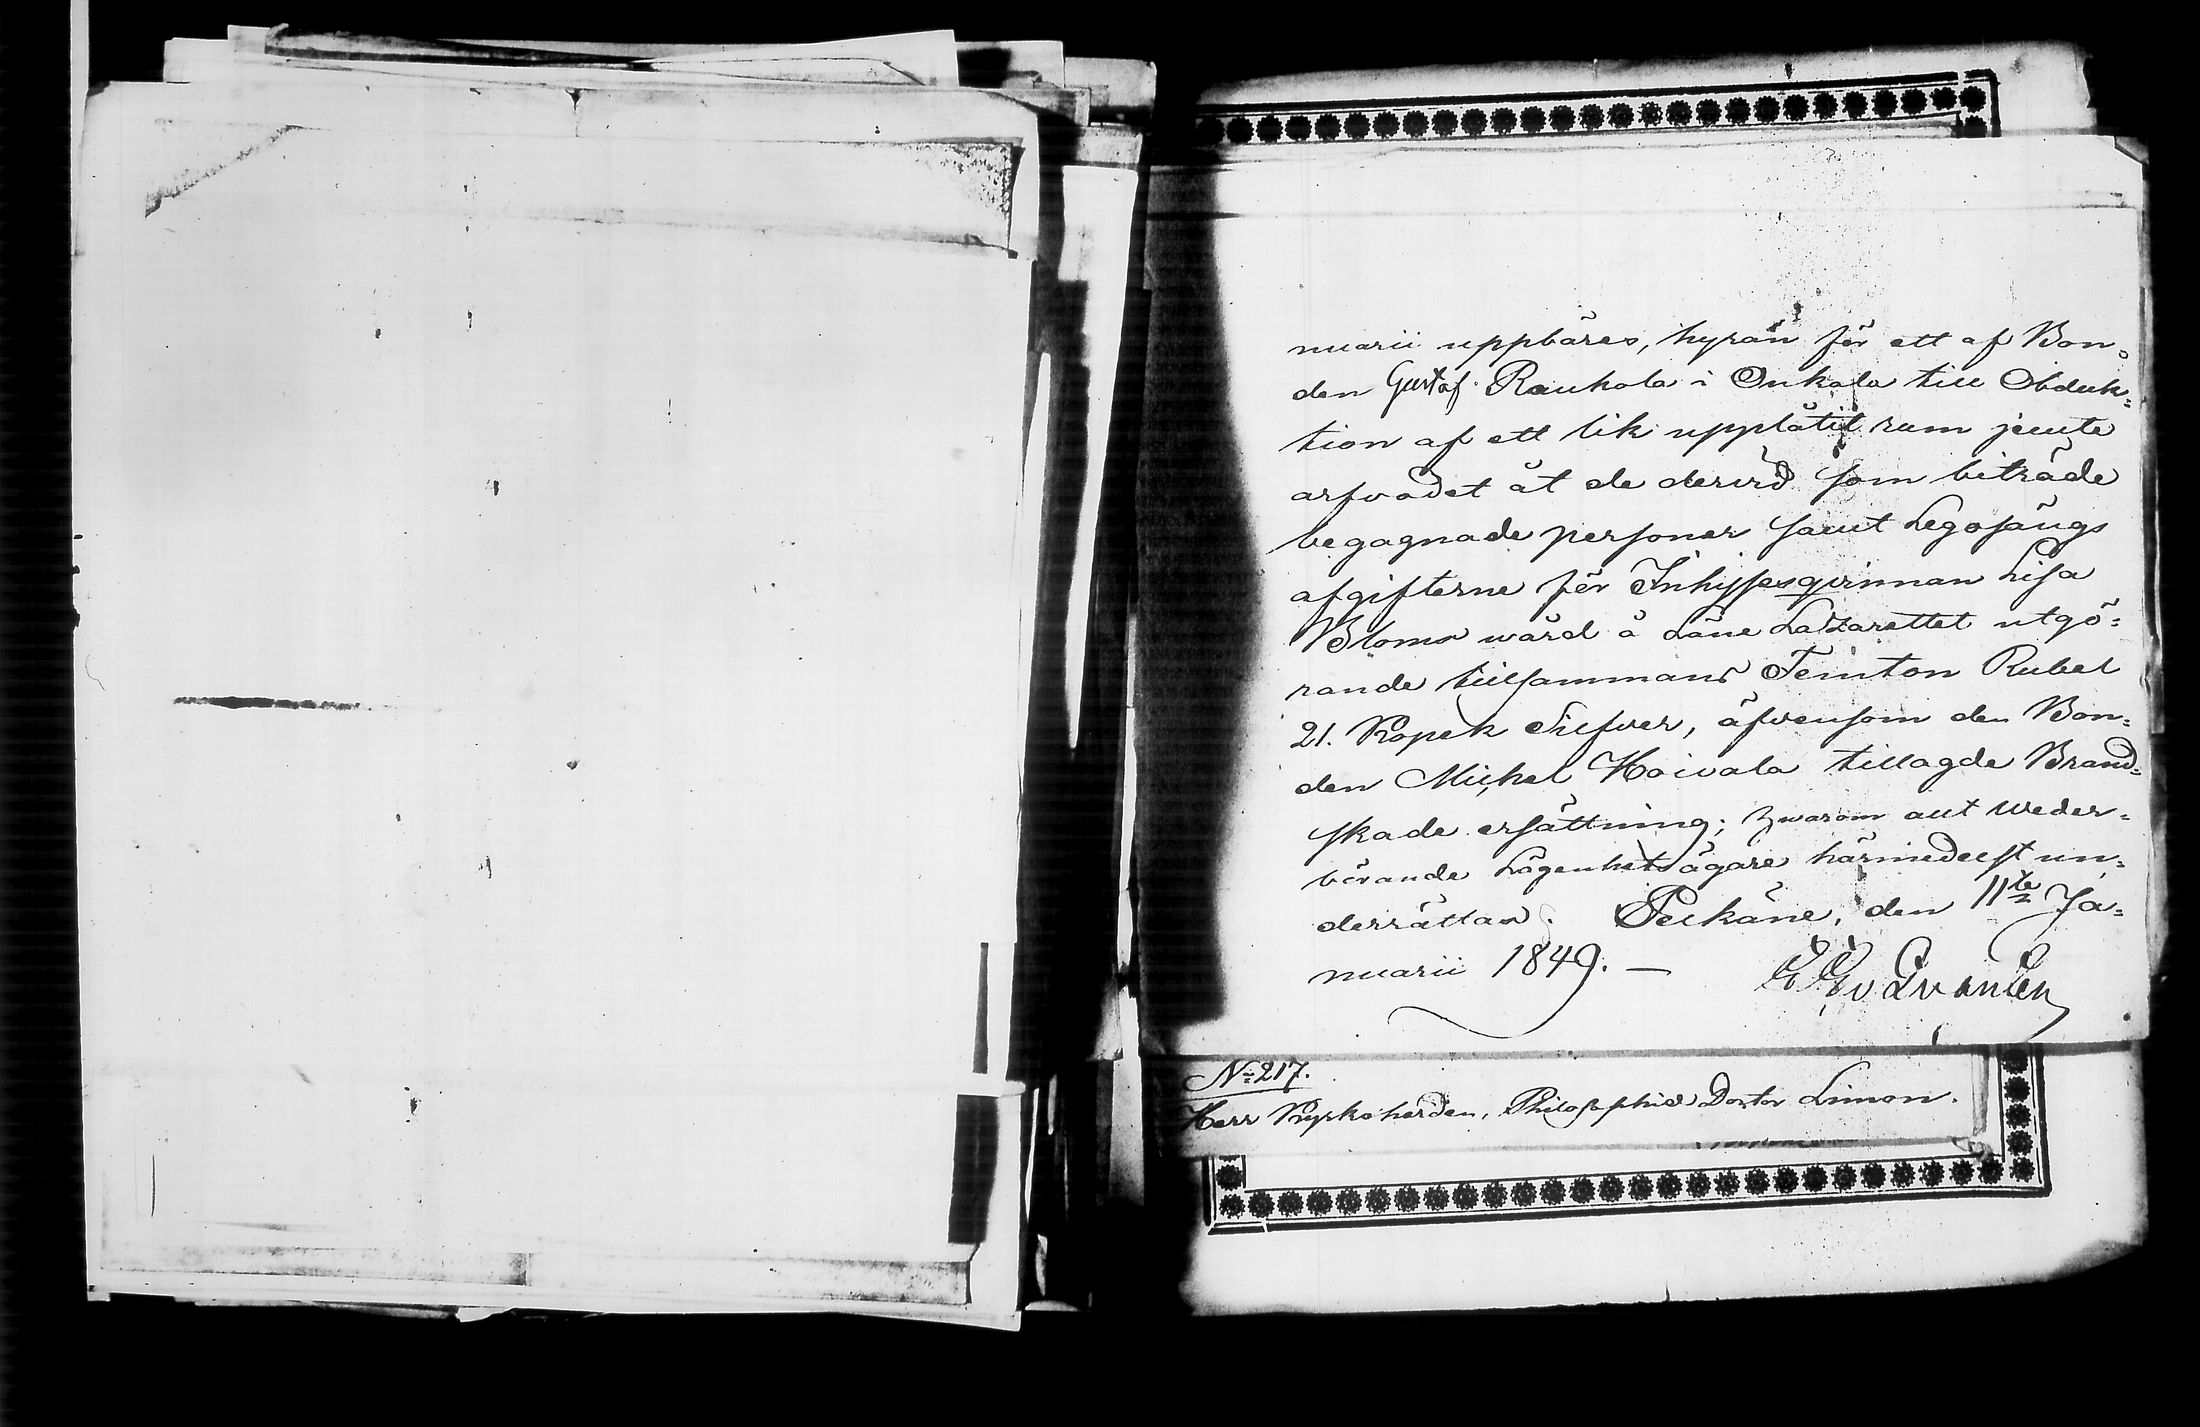 nuarii uppbäres, hyran för ett af Bon=
den Gustaf Rauhola i Onkala till Obduk=
tion af ett lik upplåtit rum jemte
arfvodet åt de dervid som biträde
begagnade personer samt Legosängs
afgifterne för Inhyseseqvinnan Lisa
Bloms wård å Läne Lazarettet utgö=
rande tillsammans Femton Rubel
21. Kopek Silfver, äfvensom den Bon=
den Michel Hoivala tillagde Brand=
skade ersättning; hwarom aut weder=
börande Lägenhetsägare härmedelst un=
derrättas. Peikäne, den 11te Ja=
nuarii 1849. —
No 217.
Herr Kyrkoherden, Philosophiæ Doctor Limon.